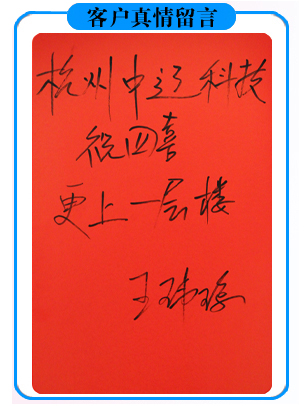 客户真情留言
杭州中迈科技
祝四喜
更上一层楼
王玮